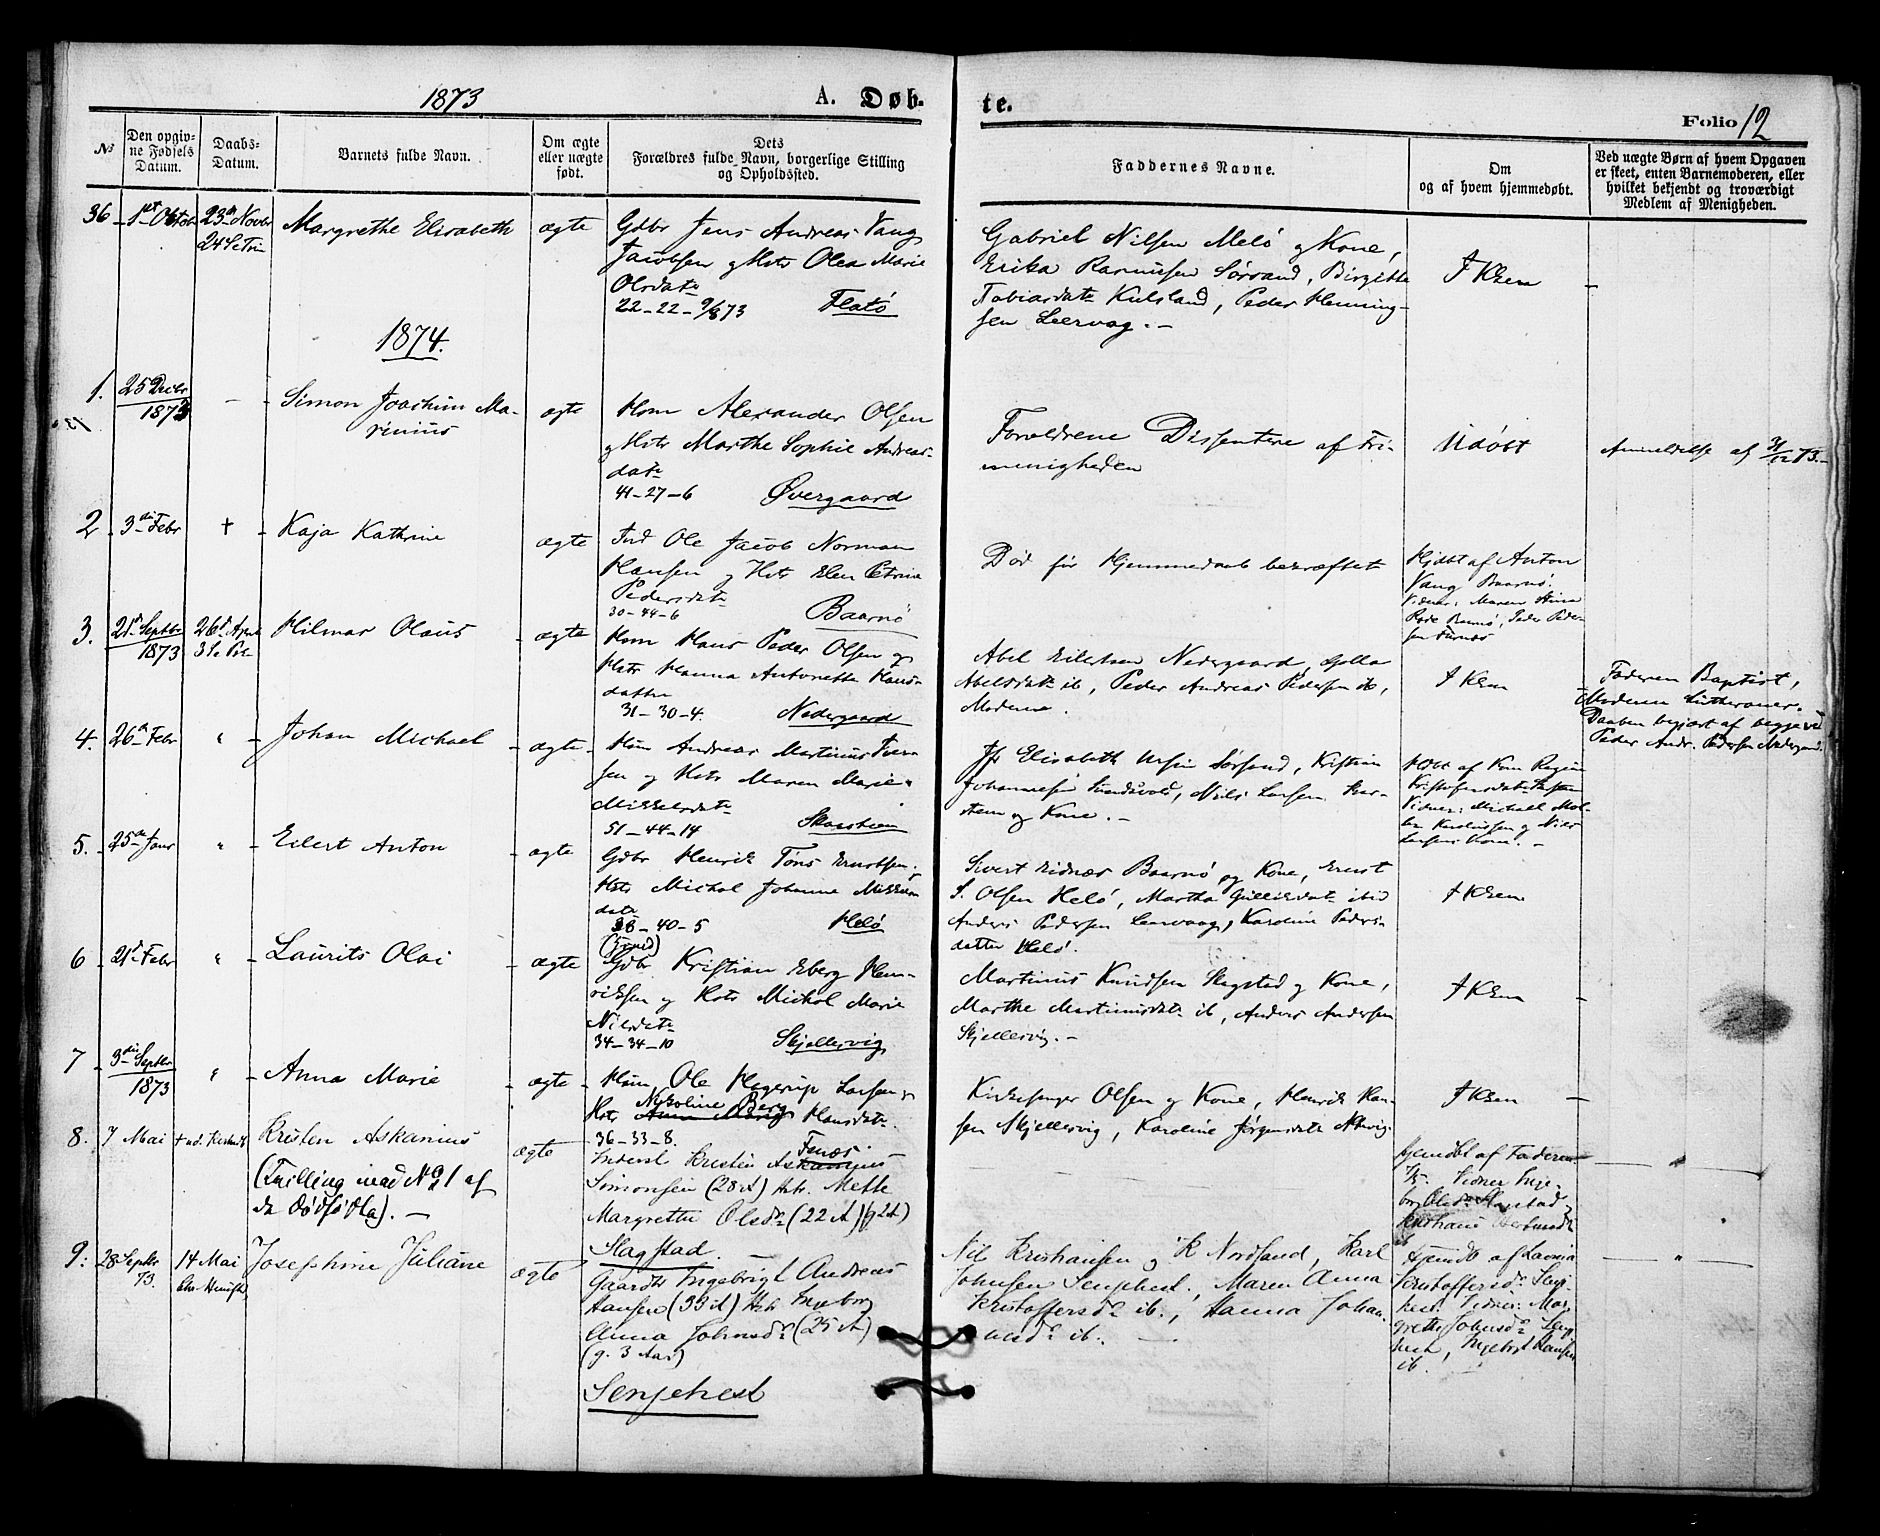 1873
A. Døb-
te.
Folio 12
No
Den opgiv-
ne Fødsels
Datum.
Daabs-
Datum.
Barnets fulde Navn.
Om ægte
eller uægte
født.
Dets
Forældres fulde Navn, borgerlige Stilling
og Opholdssted.
Faddernes Navne.
Om
og af hvem hjemmedøbt.
Ved uægte Børn af hvem Opgaven
er skeet, enten Barnemoderen, eller
hvilket bekjendt og troværdigt
Medlem af Menigheden.
36
23 Novbr
Margrethe Elisabeth
ægte
Gdbr Jens Andreas Vang
Jacobsen og Hstr Olea Marie
Olsdatr
22-22-9/8 73 Flatö
Gabriel Nilsen Melö og Kone,
Erika Rasmussen Sörsand, Birgitte
Tobiasdatr Kulsland, Peder Henning-
sen Leervog.-
1874.
1.
25 Decbr
1873
Simon Joachim Ma-
rinius
ægte
Alexander Olsen
og Hstr Marthe Sophie Andreas-
datr
41-27-6 Øvergaard
Forældrene Dissentere af Fri-
menigheden
Udöbt
Anmeldelse af 31/12 73.-
2
3die Febr
†
Kaja Kathrine
ægte
Ind Ole Jacob Norman
Hansen og Hstr Elen Petrine
Pedersdatr
30-44-6 Baarnö
Död för Hjemmedaab bekræftet
Hjdbt af Anton
Vang Baarnö.
Vidner: Maren Stina
3.
21 Septbr
1873
26 April
Hilmar Olaus
ægte
Hans Peder Olsen og
Hstr Hanna Antonette Hans-
datter
31-30-4. Nedergaard
Abel Eilertsen Nedergaard, Golla
Abelsdatr ib, Peder Andreas Pedersen ib,
Moderen.
Faderen Baptist,
Moderen Lutheraner.
Daaben begjært af begge ved
Peder Andr. Pedersen Nedergaard.
4.
26 Febr
"
Johan Michael
ægte
Andreas Martinus Iver-
sen og Hstr Maren Marie
Mikkelsdatr
51-44-14
Elisabeth Sörsand, Kristian
Johannesen, Nils Larsen
og Kone.-
5.
25 Janr
"
Eilert Anton
ægte
Gdbr Henrik Töns Ernstsen,
Hstr Michol Johanne Mikkels
datr
38-40-5 Helö
Sivert Eidnæs Baarnö og Kone, Ernst
S. Olsen Helö, Martha ibid
Anders Pedersen Leervaag, Karoline Peders-
datter Helö.
6
21 Febr
"
Laurits Olai
ægte
Gdbr. Kristian Eberg Hen-
riksen og Hstr Michol Marie
Nilsdatr
34-34-10 Skjellesvig
Martinus Knudsen Slagstad og Kone,
Marthe Martinusdatr ib, Anders Andersen
Skjellesvig.-
7
3die Septbr
1873
"
Anna Marie
ægte
Ole Hagerup Larsen,
Nikoline Berg
Hstr Hansdatr.
36-33-8. Finnæs.
Kirkesanger Olsen og Kone, Henrik Han-
sen Skjellesvig, Karoline Jörgensdatr
8.
7 Mai
Kristen Askanius
(Tvilling med No 1 af
de Dødfødte).-
ægte
Inderst Kristen Askanius
Simonsen (28 A) Hstr. Mette
Margrethe Olsdr (22 A) (g 2 A)
Slagstad.
hjemdbt af Faderen
Slagstad
"
9.
28 Septbr
73.
14 Mai
Josephine Juliane
ægte
Gaardbr Ingebrigt Andreas
Hansen (33 A) Hstr Ingeborg
Anna Johnsdr (25 A)
(g. 3 Aar)
Senjehest
Nils Kristiansen og K Nordsand, Karl
Johnsen Senjehest, Maren Anna
Kristoffersdr ib., Hanna Johan-
nesdr ib.
Hjemdbt af Lavina
Kristoffersdr Senje-
hest. Vidner: Mar-
grethe Johnsdr Senje-
hest, Ingebrigt Hansen
ib.
"